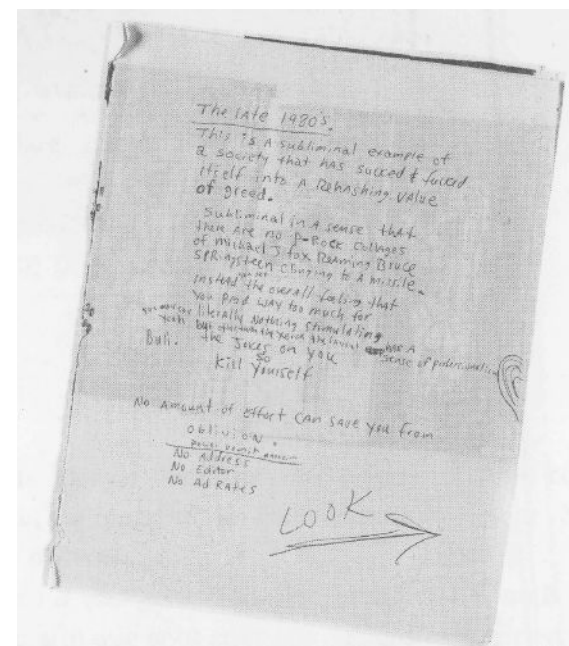 The late 1980's.
This is A subliminal example of
a society that has sucked & fucked
itself into A Rehashing value
of greed.
Subliminal in A sense that
there are no P-Rock Collages
of Michael J fox Reaming Bruce
SPRingsteen clinging to A missile.
instead the overall feeling that
you Paid way too much for
literally Nothing stimulating
yeah but has A
sense of professionalism
the Jokes on you
so
Kill yourself
No amount of effort can save you from
oblivion.
No Address
No Editor
No Ad Rates
LOOK